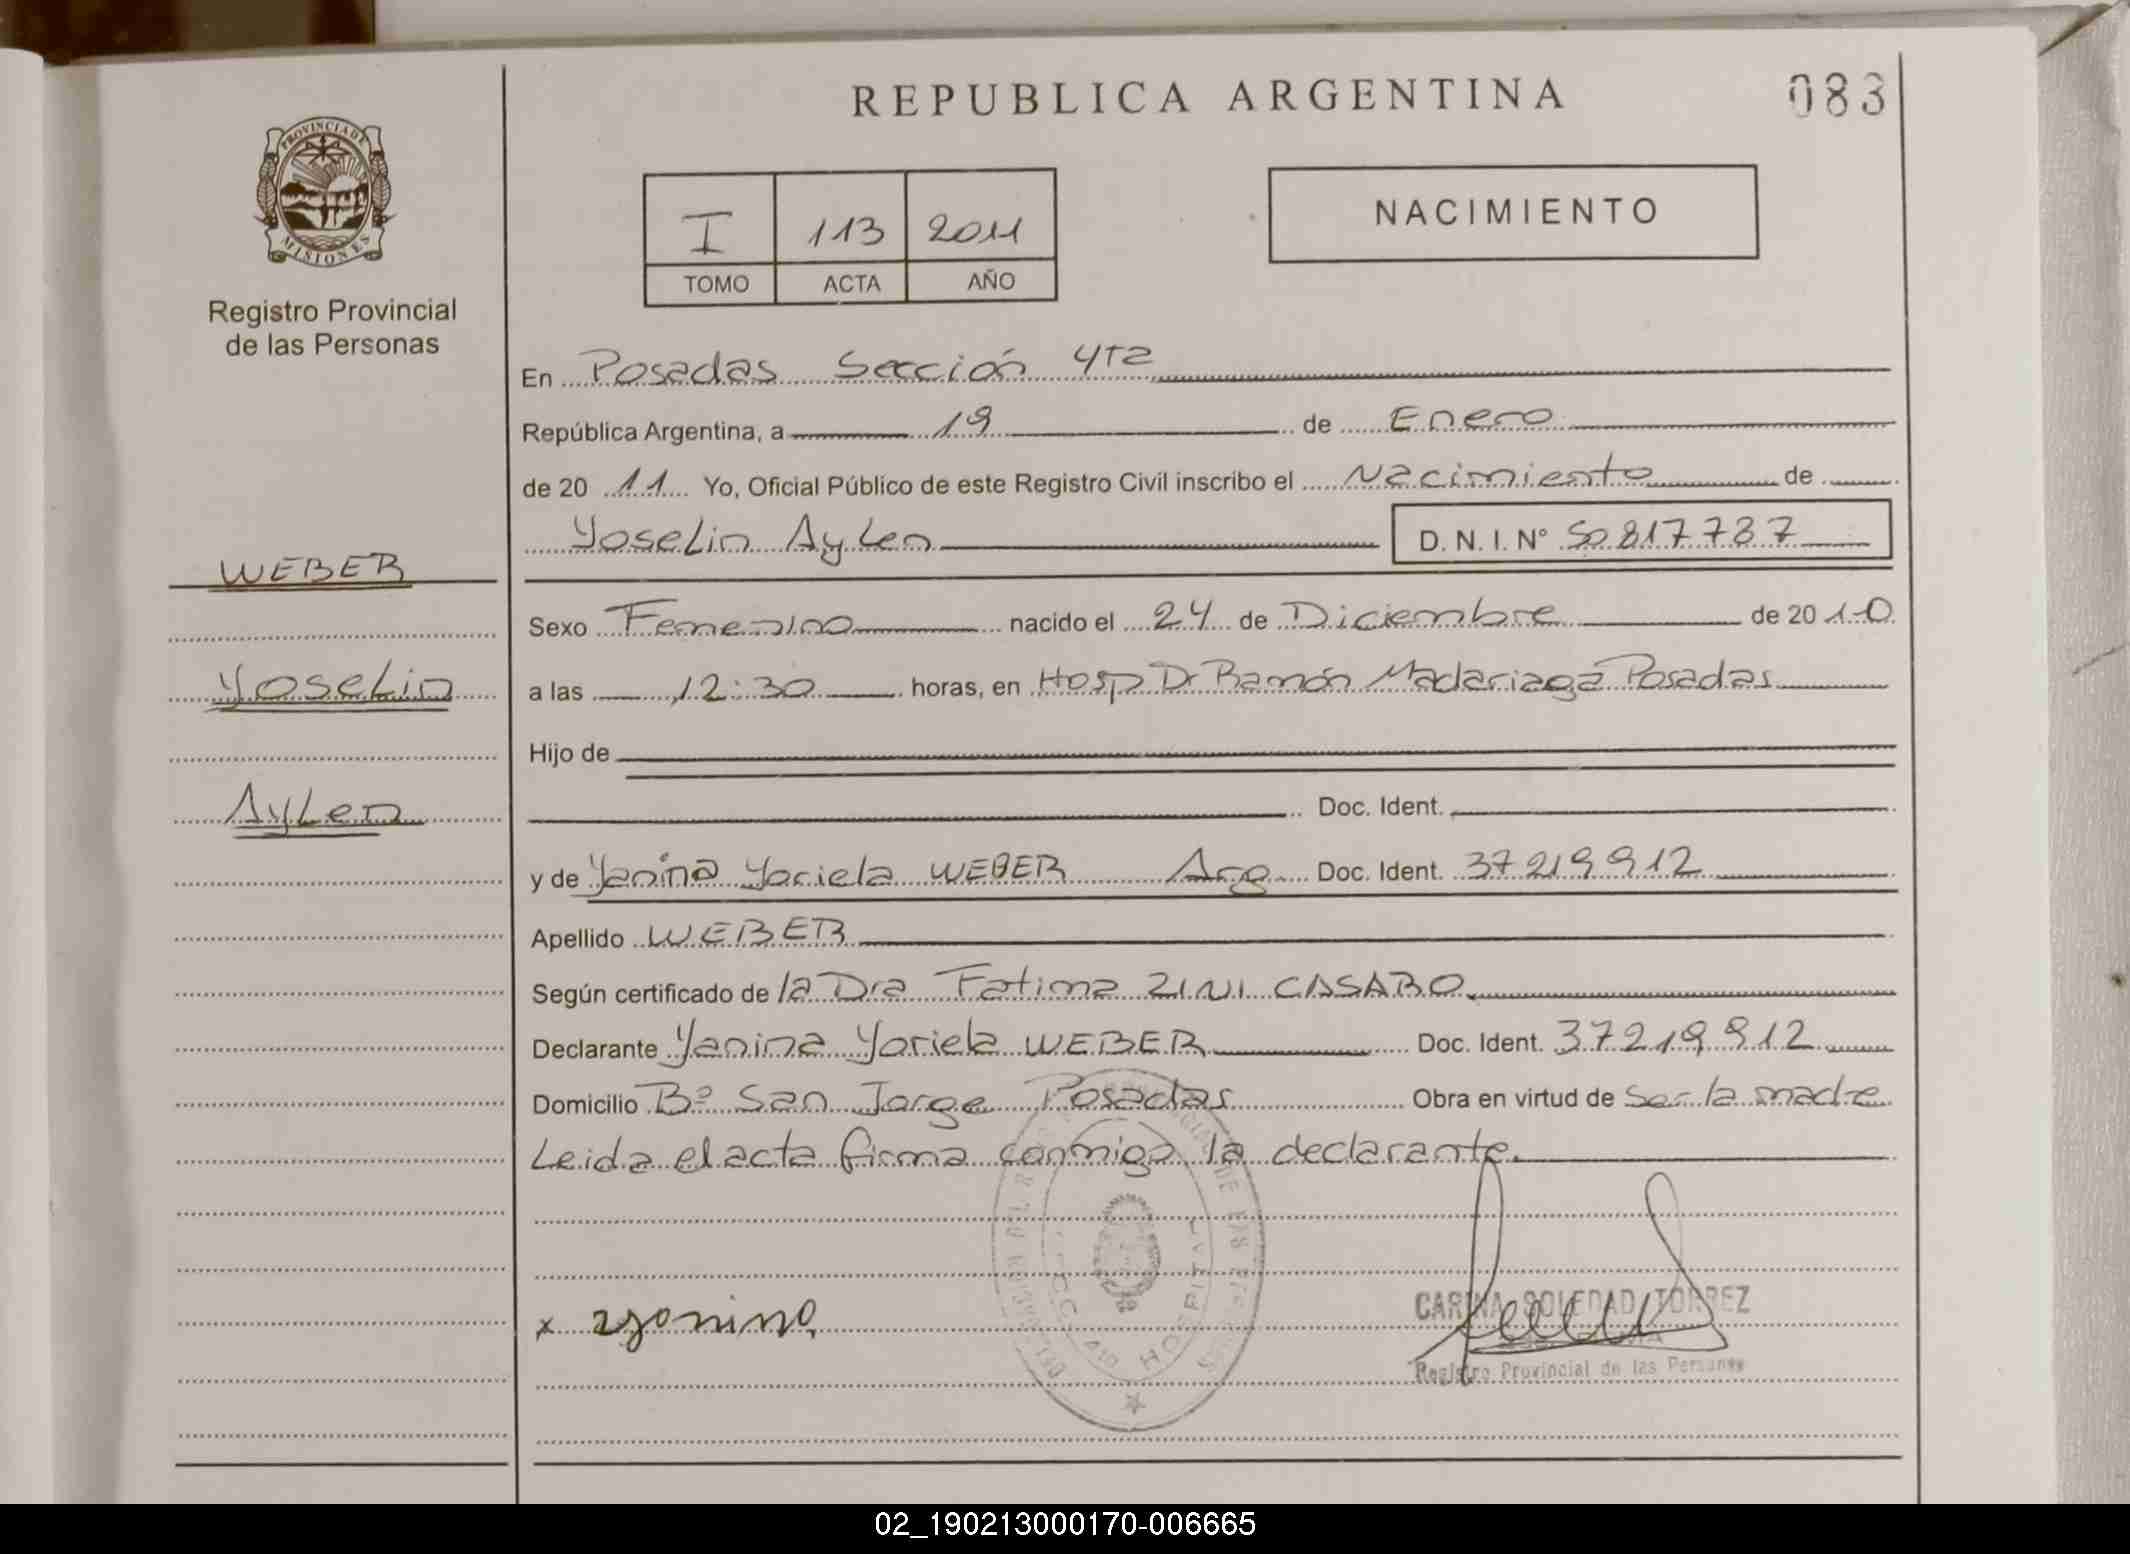 REPUBLICA ARGENTINA
083
PROVINCIA DE
MISIONES
Registro Provincial
de las Personas
I 113 2011
TOMO ACTA AÑO
NACIMIENTO
En Posadas Sección 4ta
República Argentina, a 19 de Enero
de 20 11 Yo, Oficial Público de este Registro Civil inscribo el Nacimiento de
Yoselin Aylen D. N. I. N° 50817787
WEBER
Yoselin
Aylen
Sexo Femenino nacido el 24 de Diciembre de 2010
a las 12:30 horas, en Hosp Dr Ramón Madariaga Posadas
Hijo de
Doc. Ident.
y de Yanina Yoriela WEBER Arg Doc. Ident. 37219912
Apellido WEBER
Según certificado de la Dra Fatima ZINI CASARO
Declarante Yanina Yoriela WEBER Doc. Ident. 37219912
Domicilio B° San Jorge Posadas Obra en virtud de ser la madre
Leida el acta firma conmigo la declarante.
x yanina
CARINA SOLEDAD TORREZ
Registro Provincial de las Personas
HOSPITAL
02_190213000170-006665